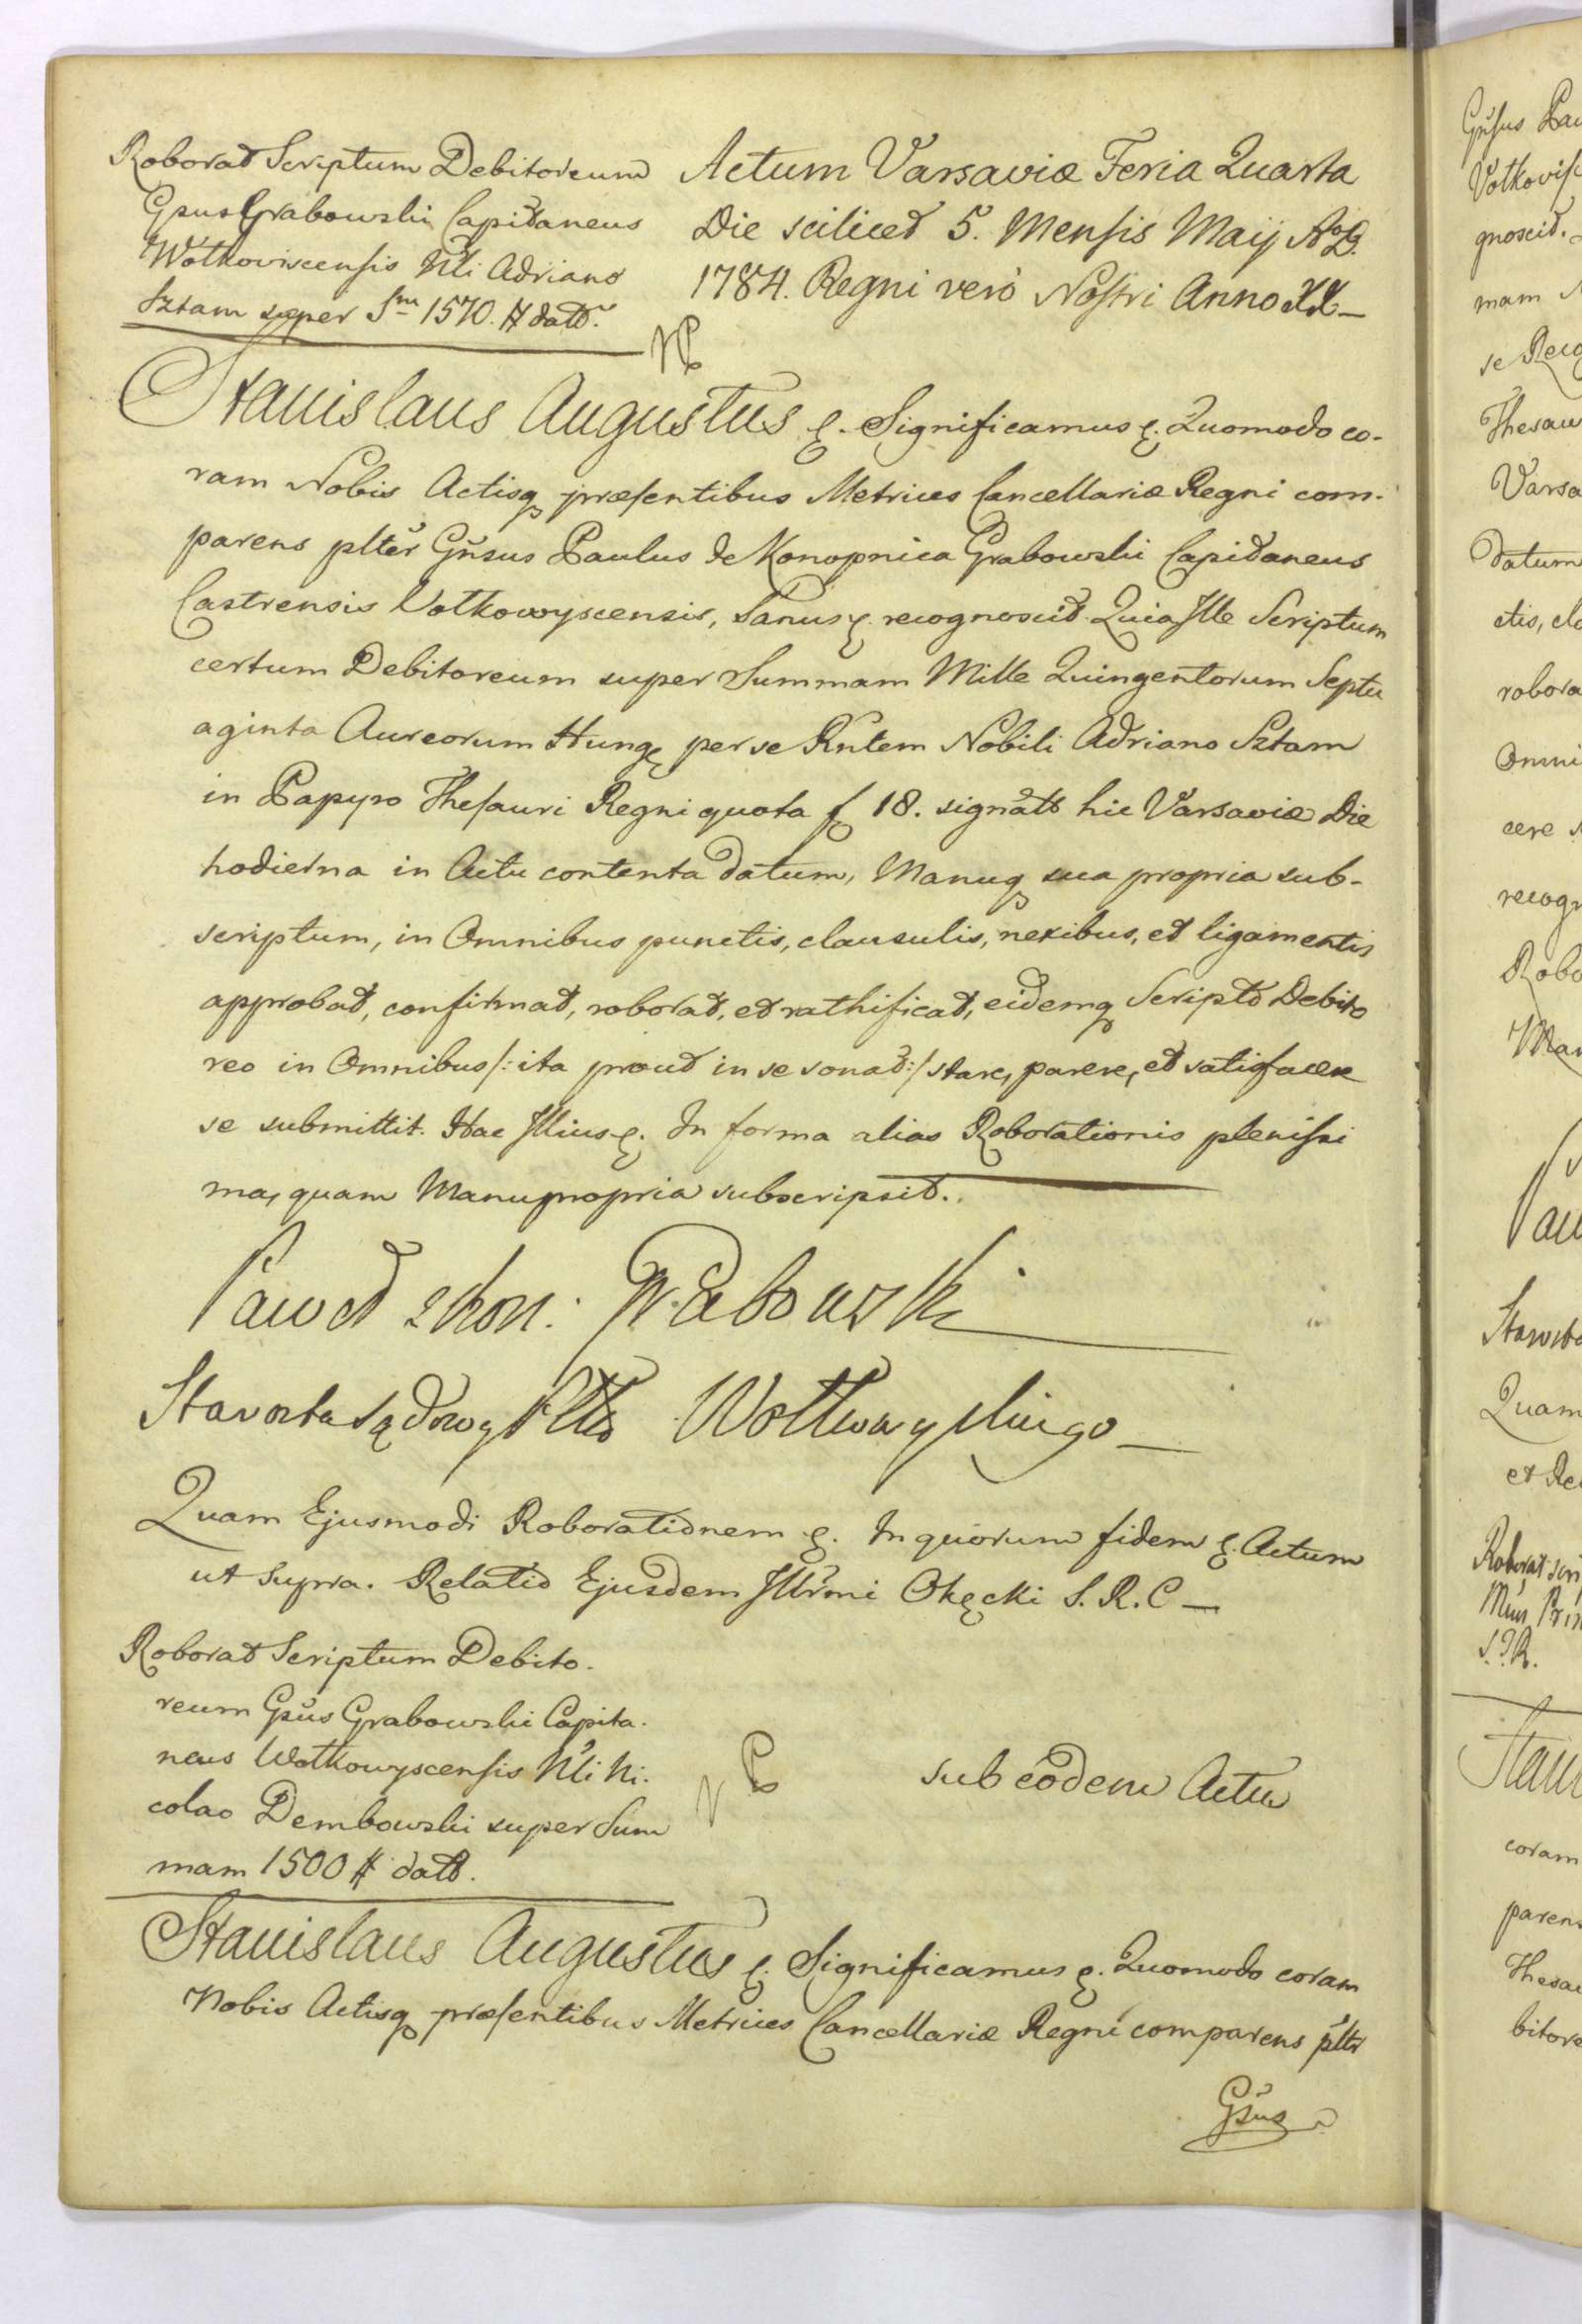 Roborat Scriptum Debitoreum
Gsus Grabowski Capitaneus
Wołkoviscensis Nli Adriano
Sztam super Sm 1570. # datt.
Actum Varsaviæ Feria Quarta
Die scilicet 5. Mensis Maij A.D.
1784. Regni vero Nostri Anno XX
Stanislaus Augustus &. Significamus &. Quomodo co-
ram Nobis Actisq præsentibus Metrices Cancellariæ Regni com-
parens plter Gnsus Paulus de Konopnica Grabowski Capitaneus
Castrensis Vołkowyscensis, Sanus &. recognoscit. Quia Ille Scriptum
certum Debitoreum super Summam Mille Quingentorum Septu
aginta Aureorum Hung per se Rntem Nobili Adriano Sztam
in Papyro Thesauri Regni quota f 18. signatt hic Varsaviæ Die
hodierna in Actu contenta datum, Manuq sua propria sub-
scriptum, in Omnibus punctis, clausulis, nexibus, et ligamentis
approbat, confirmat, roborat, et rathificat, eidemq Scripto Debito
reo in Omnibus /: ita prout in se sonat :/ stare, parere, et satisfacere
se submittit. Hac Illius &. In forma alias Roborationis plenissi
ma, quam Manu propria subscripsit.
Paweł z Kon: Grabowski
Starosta Sądowy Pttu Wołkowyskiego
Quam Ejusmodi Roborationem &. In quorum fidem &. Actum
ut supra. Relatio Ejusdem Illrmi Okęcki S. R. C
Roborat Scriptum Debito-
reum Gsus Grabowski Capita-
neus Wołkowyscensis Nli Ni-
colao Dembowski super Sum
mam 1500 # datt.
sub eodem Actu
Stanislaus Augustus &. Significamus &. Quomodo coram
Nobis Actisq præsentibus Metrices Cancellariæ Regni comparens pltr
Gsus